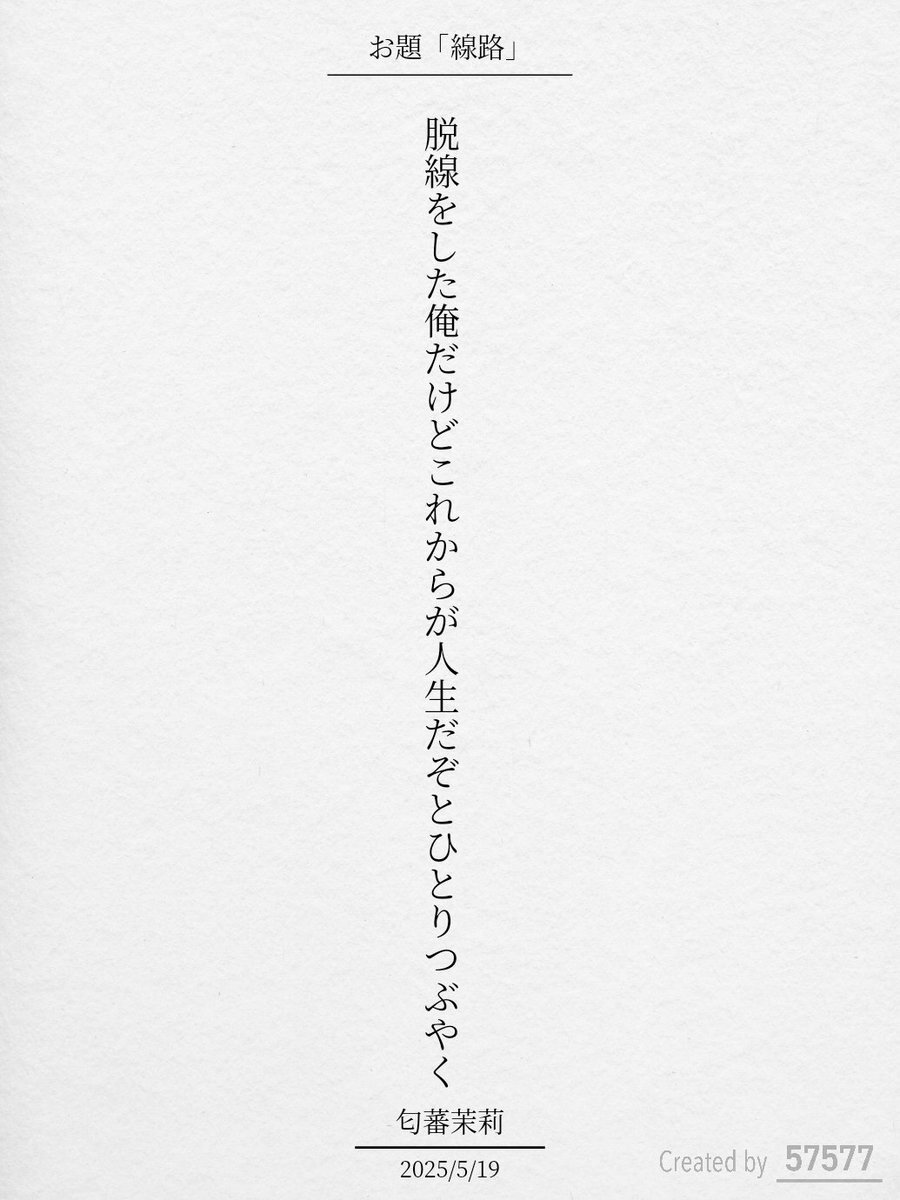 お題「線路」
脱線をした俺だけどこれからが人生だぞとひとりつぶやく
匂蕃茉莉
2025/5/19
Created by 57577